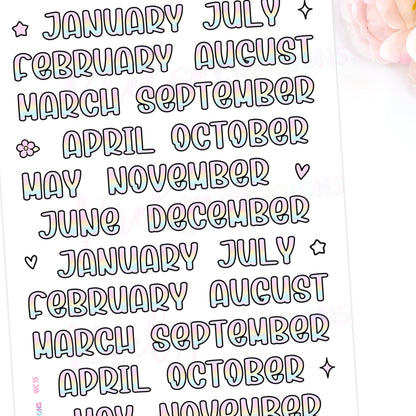 JANUARY JULY
FEBRUARY AUGUST
MARCH SEPTEMBER
APRIL OCTOBER
MAY NOVEMBER
JUNE DECEMBER
JANUARY JULY
FEBRUARY AUGUST
MARCH SEPTEMBER
APRIL OCTOBER
MAY NOVEMBER
WC15